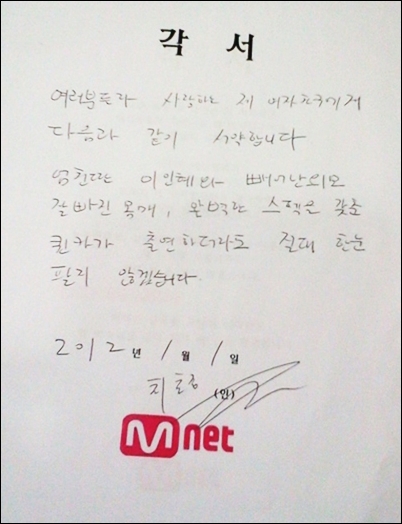 각 서
여러분들과 사랑하는 제 여자친구에게
다음과 같이 서약합니다
엄친딸 이인혜와 빼어난외모
잘빠진 몸매, 완벽한 스펙은 갖춘
퀸카가 출연하더라도 절대 한눈
팔지 않겠습니다.
2012년 1월 1일
(인)
Mnet